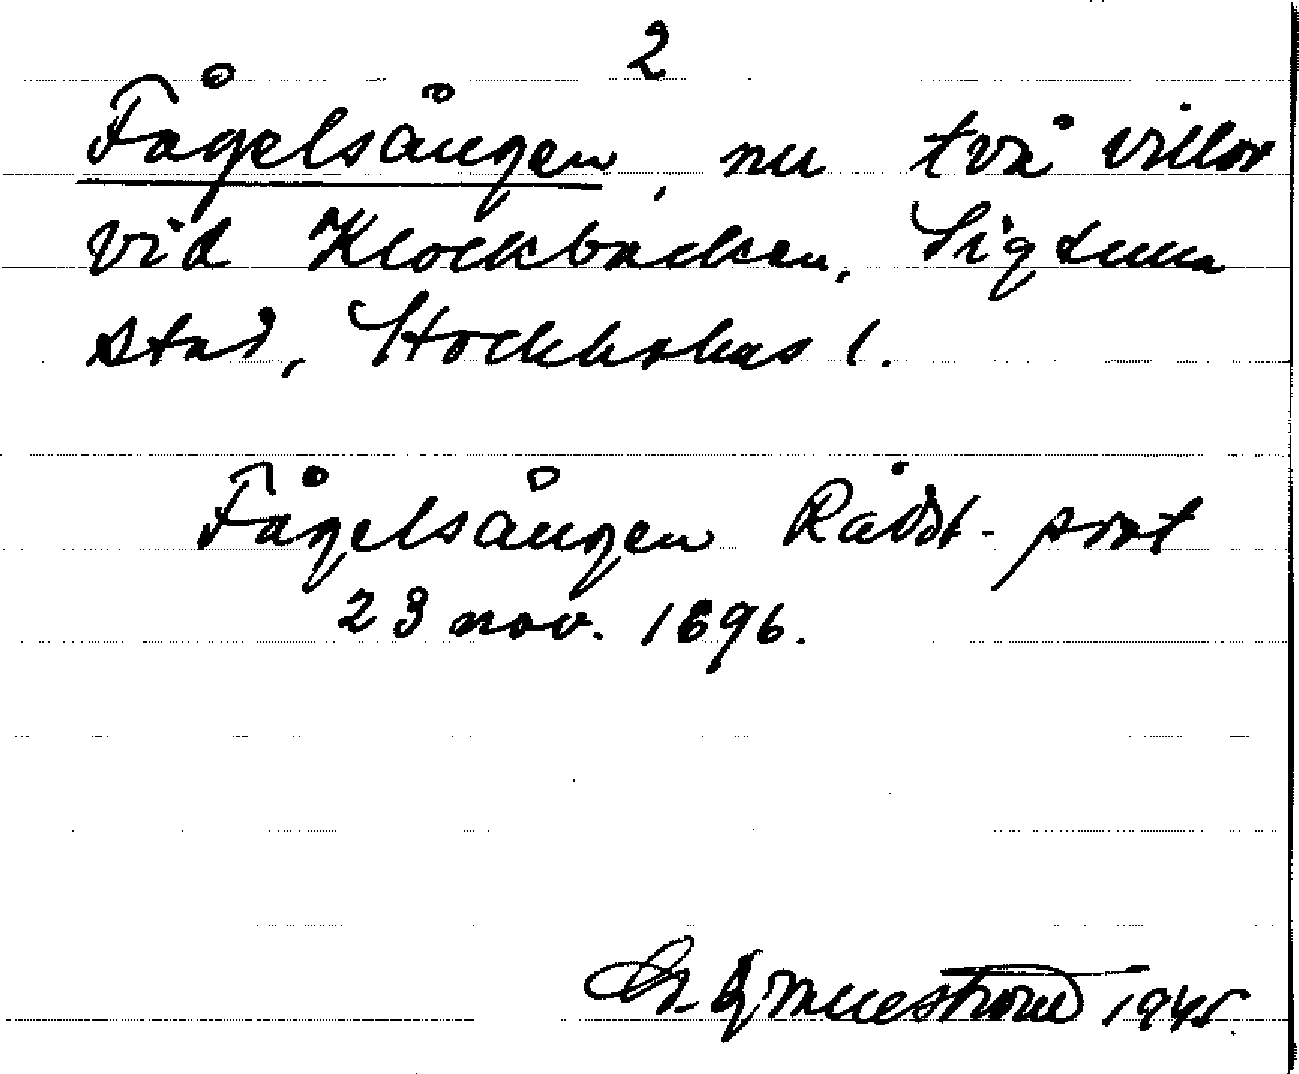 2
Fågelsången, nu två villor
vid Klockbacken, Sigtuna
stad, Stockholms l.
Fågelsången Rådst. prot
23 nov. 1896.
1945.